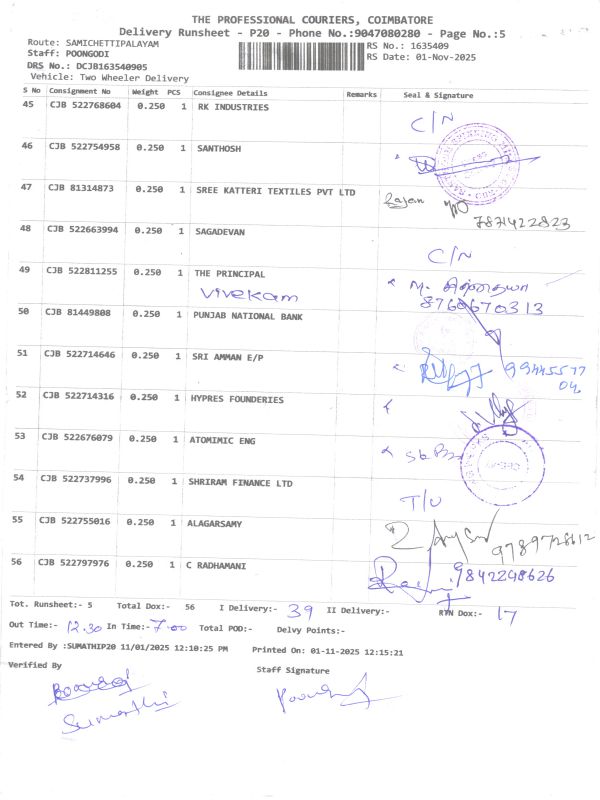 THE PROFESSIONAL COURIERS, COIMBATORE
Delivery Runsheet - P20 - Phone No.:9047080280 - Page No.:5
Route: SAMICHETTIPALAYAM RS No.: 1635409
Staff: POONGODI RS Date: 01-Nov-2025
DRS No.: DCJB163540905
Vehicle: Two Wheeler Delivery
S No Consignment No Weight PCS Consignee Details Remarks Seal & Signature
45 CJB 522768604 0.250 1 RK INDUSTRIES C/N
46 CJB 522754958 0.250 1 SANTHOSH
47 CJB 81314873 0.250 1 SREE KATTERI TEXTILES PVT LTD Rajan
7871422823
48 CJB 522663994 0.250 1 SAGADEVAN C/N
49 CJB 522811255 0.250 1 THE PRINCIPAL
Vivekam 8760670313
50 CJB 81449808 0.250 1 PUNJAB NATIONAL BANK
51 CJB 522714646 0.250 1 SRI AMMAN E/P 99445577
04
52 CJB 522714316 0.250 1 HYPRES FOUNDERIES
53 CJB 522676079 0.250 1 ATOMIMIC ENG
54 CJB 522737996 0.250 1 SHRIRAM FINANCE LTD T/U
55 CJB 522755016 0.250 1 ALAGARSAMY 9789728612
56 CJB 522797976 0.250 1 C RADHAMANI 9842248626
Tot. Runsheet:- 5 Total Dox:- 56 I Delivery:- 39 II Delivery:- RTN Dox:- 17
Out Time:- 12.30 In Time:- 7.00 Total POD:- Delvy Points:-
Entered By :SUMATHIP20 11/01/2025 12:10:25 PM Printed On: 01-11-2025 12:15:21
Verified By Staff Signature
Sumathi